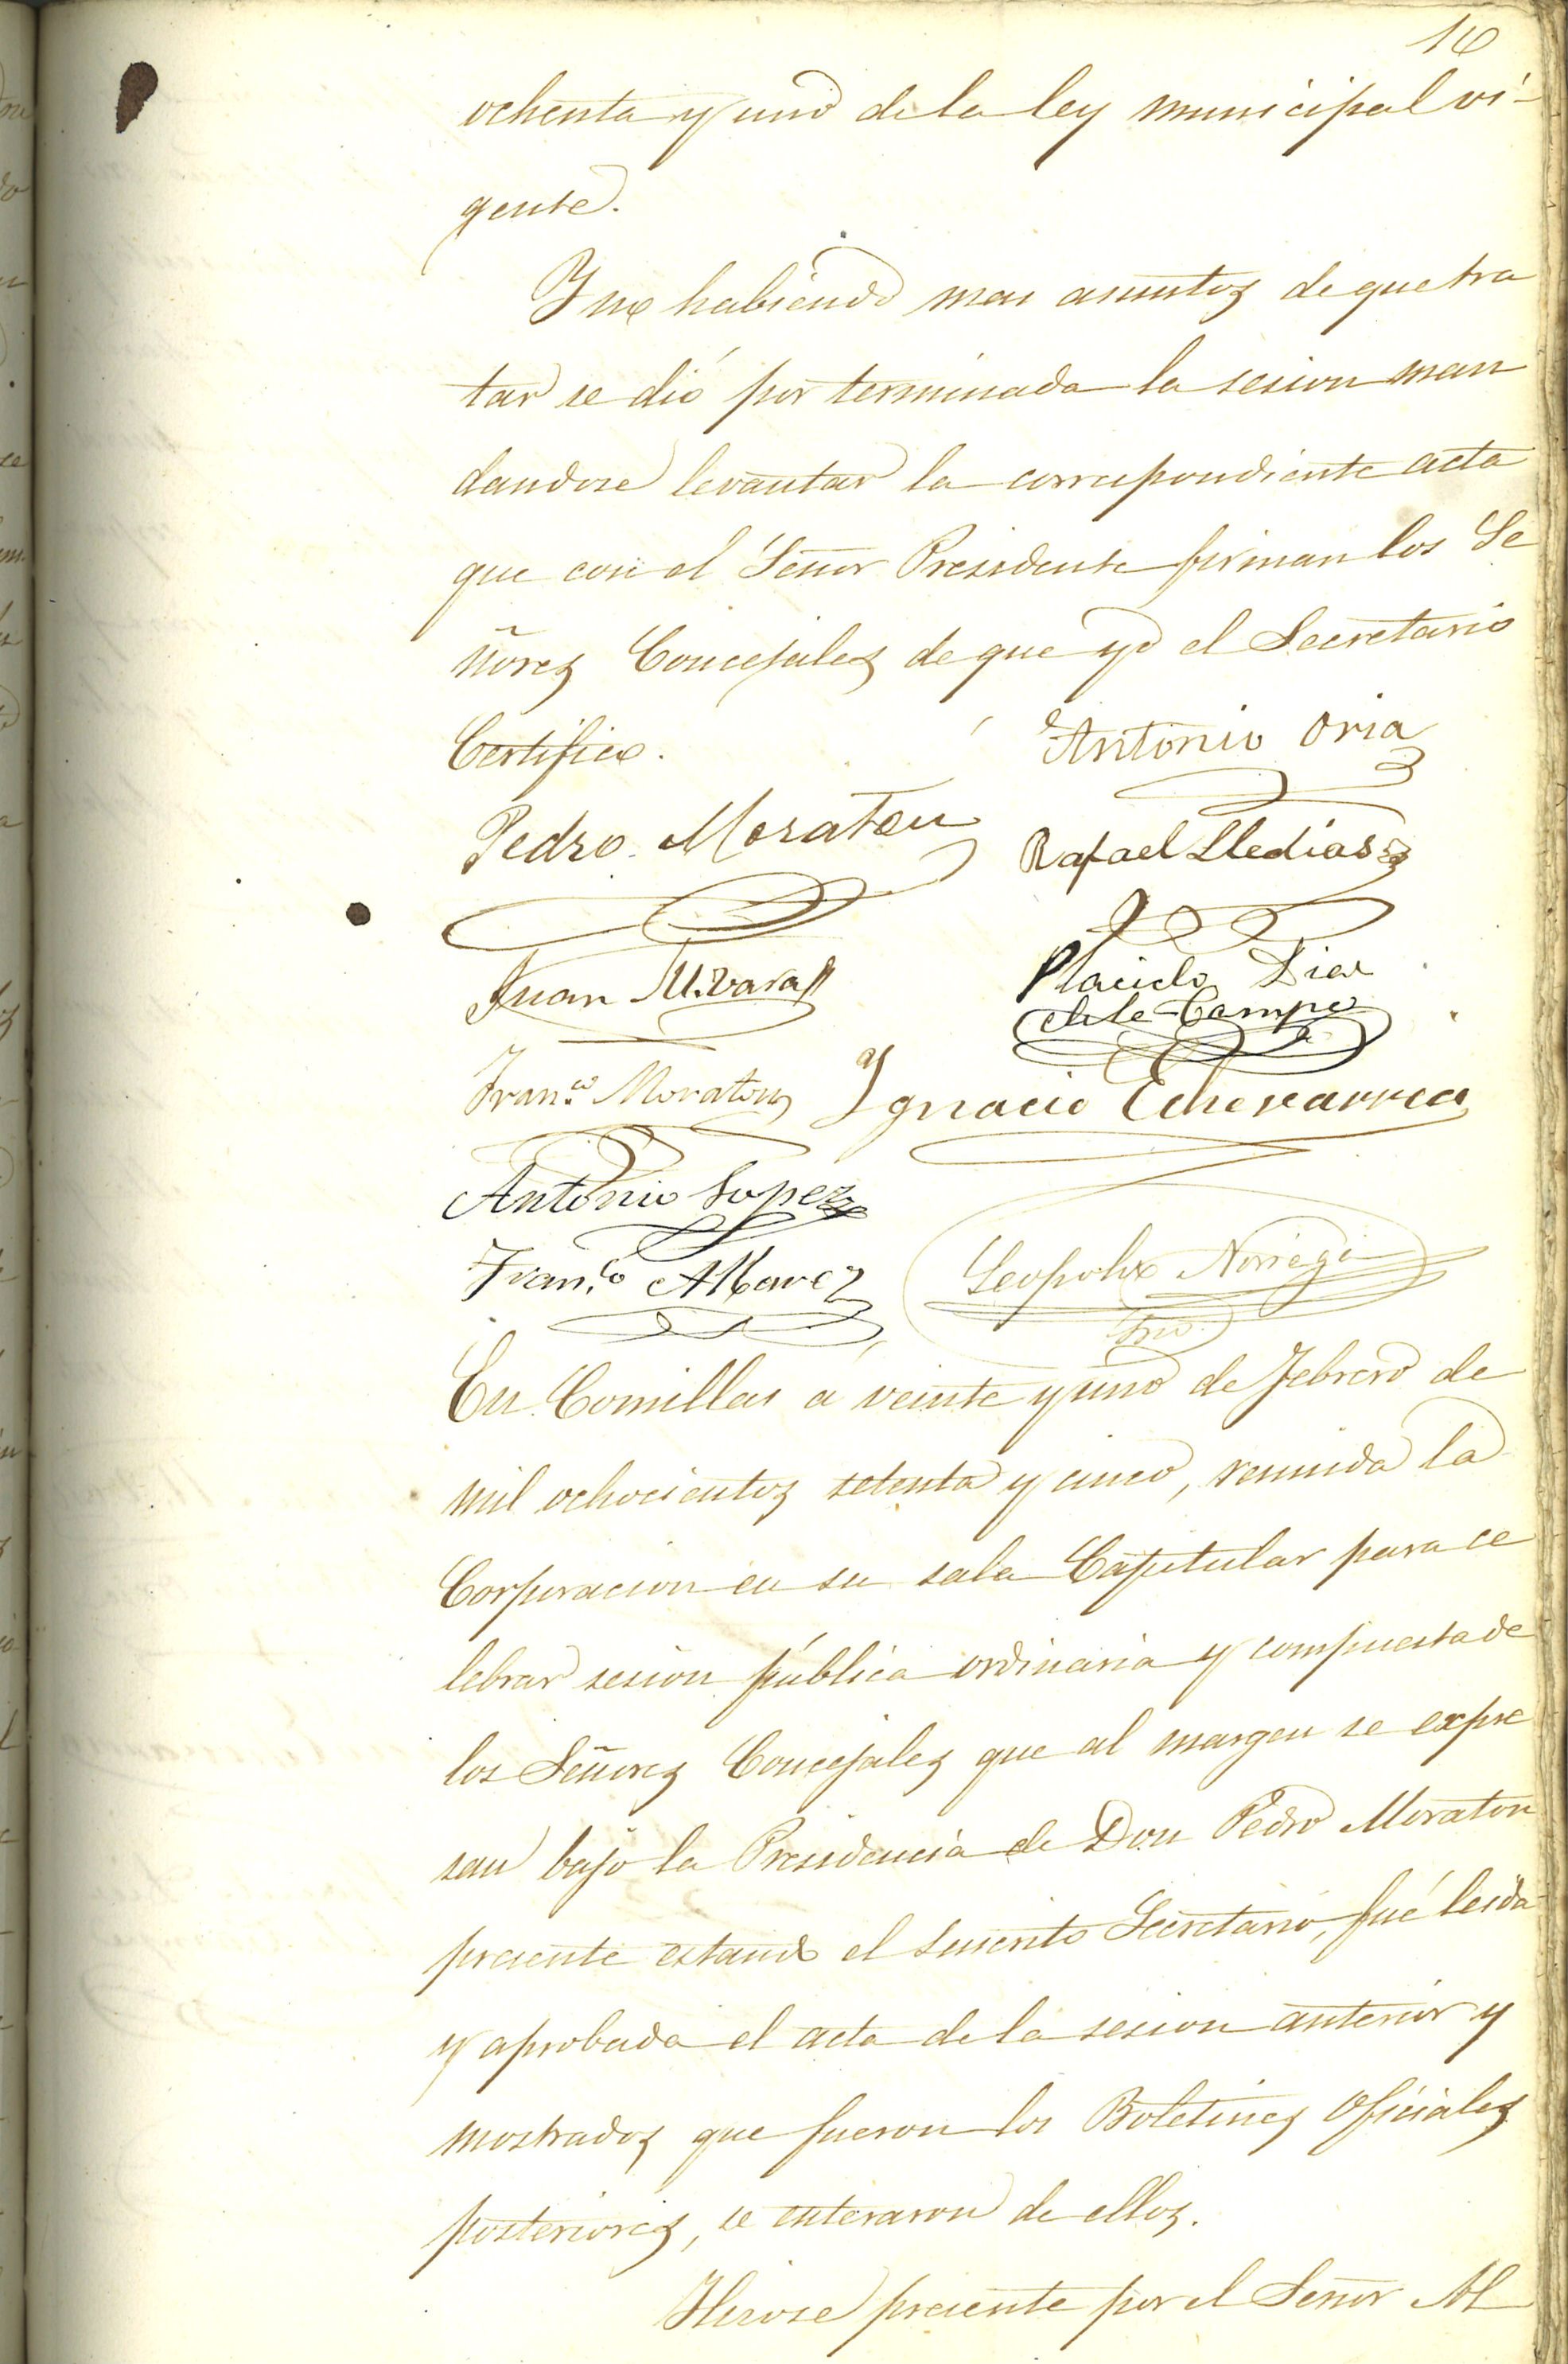 16
ochenta y uno de la ley municipal vi-
gente.
Y no habiendo mas asuntos de que tra
tar se dió por terminada la sesion man
dandose levantar la correspondiente acta
que con el Señor Presidente firman los Se
ñores Concejales de que yo el Secretario
Certifico.
Antonio Oria
Pedro Moraton
Rafael Lledias
Juan M. Vara
Placido Diaz
de la Campa
Fran.co Moraton
Ygnacio Echevarria
Antonio Lopez
Fran.co Alvarez
Leopoldo Noriega
Srio.
En Comillas a veinte y uno de Febrero de
mil ochocientos setenta y cinco, reunida la
Corporacion en su sala Capitular para ce
lebrar sesion pública ordinaria y compuesta de
los Señores Concejales que al margen se expre
san bajo la Presidencia de Don Pedro Moraton
presente estando el infrascrito Secretario, fué leida
y aprobada el acta de la sesion anterior y
mostrados que fueron los Boletines Oficiales
posteriores, se enteraron de ellos.
Hizose presente por el Señor Al